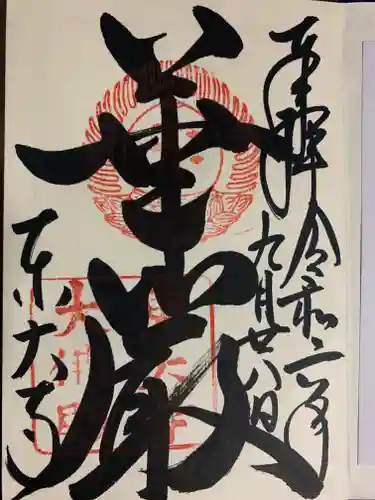 奉拝 令和二年
九月廿八日
華厳
東大寺